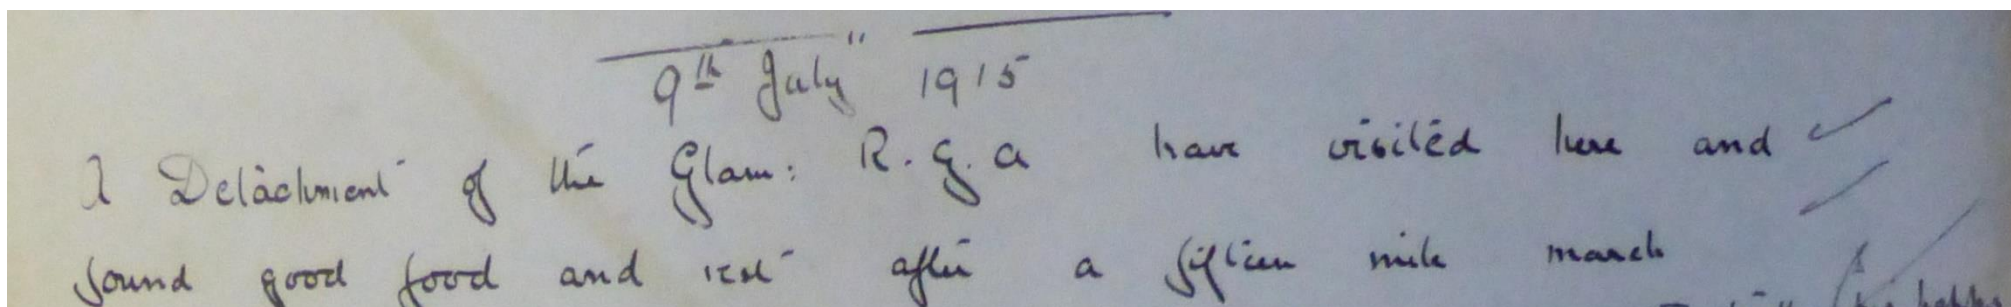 9th July" 1915
A Detachment of the Glam: R.G.A have visited here and
found good food and rest after a fifteen mile march